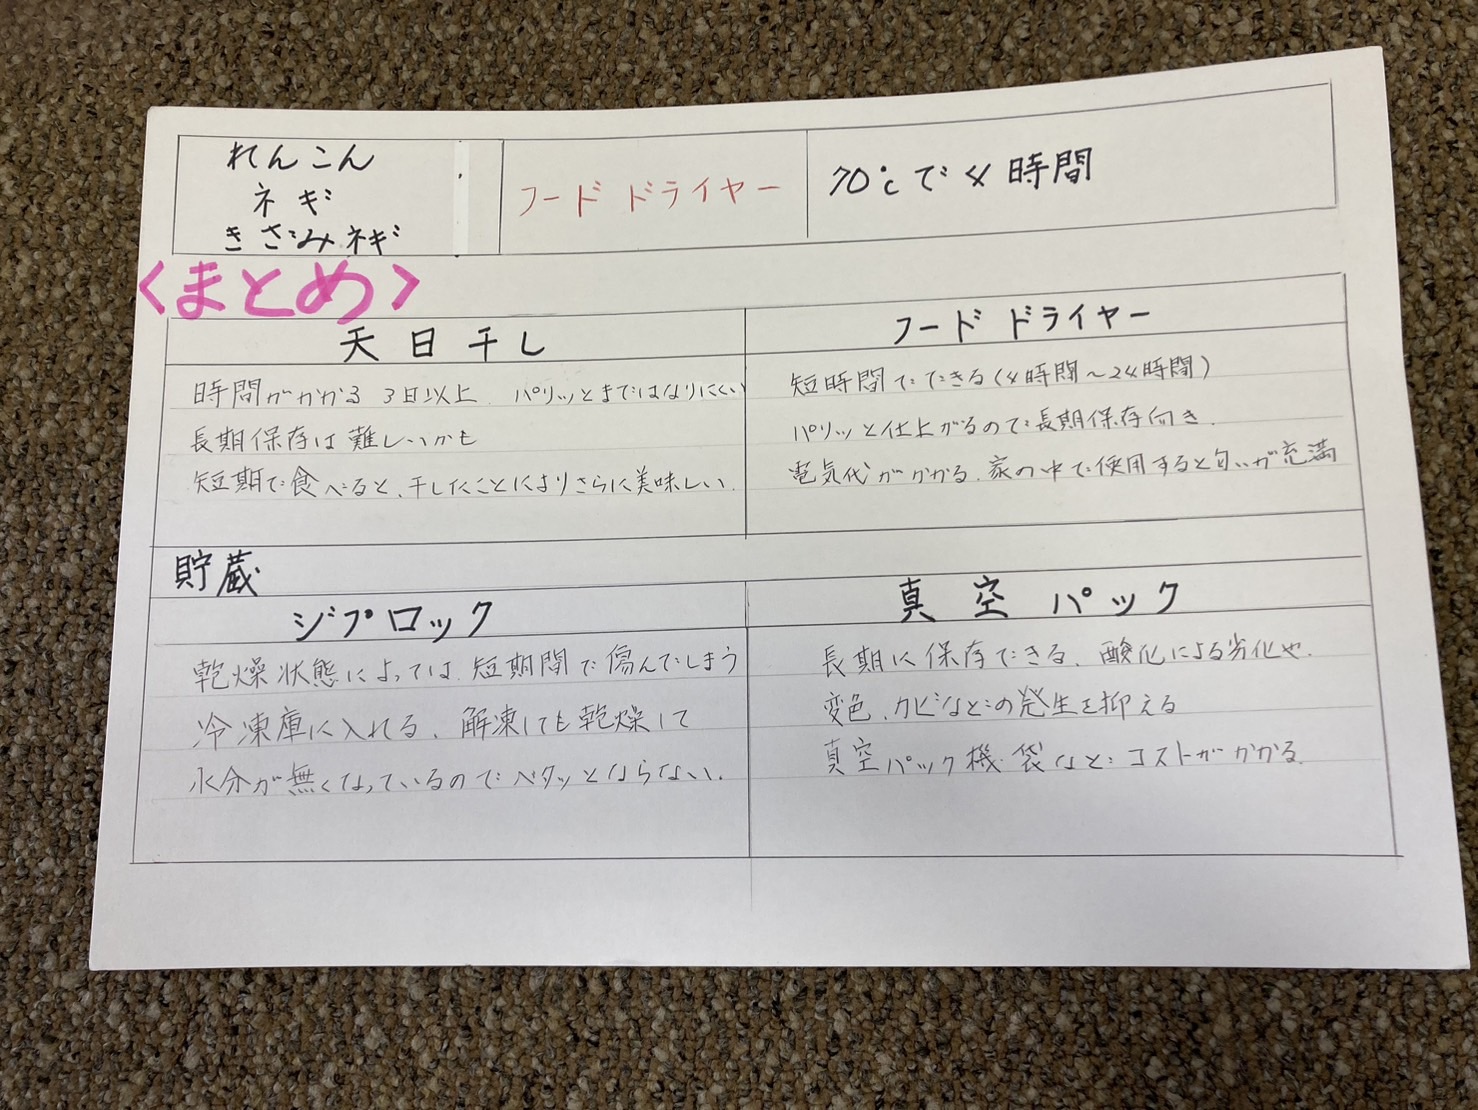 れんこん
ネギ
きざみネギ
フードドライヤー
70℃で4時間
<まとめ>
天日干し
時間がかかる 3日以上. パリッとまではなりにくい
長期保存は難しいかも
短期で食べると、干したことによりさらに美味しい.
フードドライヤー
短時間でできる(4時間～24時間)
パリッと仕上がるので長期保存向き.
電気代がかかる.家の中で使用すると匂いが充満
貯蔵
ジプロック
乾燥状態によっては.短期間で傷んでしまう
冷凍庫に入れる、解凍しても乾燥して
水分が無くなっているのでベタッとならない.
真空パック
長期に保存できる、酸化による劣化や.
変色、カビなどの発生を抑える
真空パック機.袋などコストがかかる.